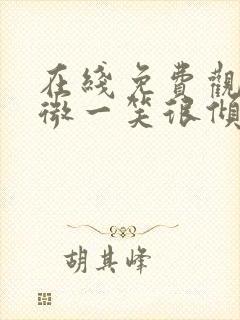 在綫免費觀
微一笑很傾
胡其峰